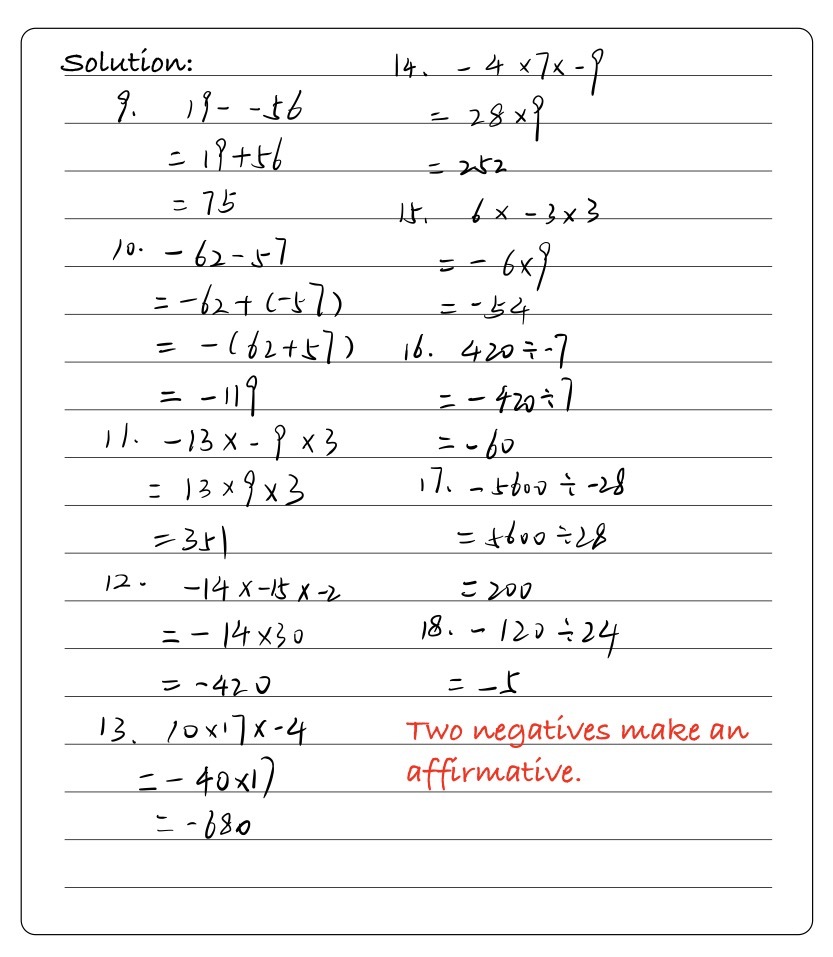 Solution:
9. 19 - -56
= 19+56
= 75
10. -62-57
= -62+(-57)
= -(62+57)
= -119
11. -13 × -9 × 3
= 13 × 9 × 3
= 351
12. -14 × -15 × -2
= -14×30
= -420
13. 10×17×-4
= -40×17
= -680
14. -4 ×7× -9
= 28 ×9
= 252
15. 6 × -3 × 3
= - 6×9
= -54
16. 420 ÷ -7
= -420÷7
= -60
17. -5600 ÷ -28
= 5600 ÷28
= 200
18. -120 ÷24
= -5
Two negatives make an
affirmative.